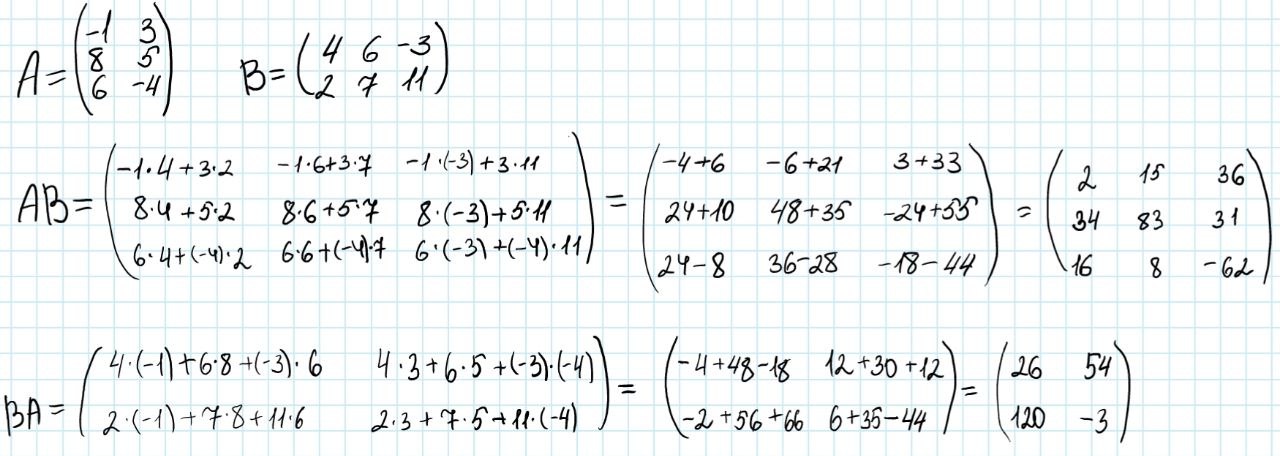 A = ( -1 3
8 5
6 -4 )
B = ( 4 6 -3
2 7 11 )
AB = ( -1·4+3·2 -1·6+3·7 -1·(-3)+3·11
8·4+5·2 8·6+5·7 8·(-3)+5·11
6·4+(-4)·2 6·6+(-4)·7 6·(-3)+(-4)·11 )
= ( -4+6 -6+21 3+33
24+10 48+35 -24+55
24-8 36-28 -18-44 )
= ( 2 15 36
34 83 31
16 8 -62 )
BA = ( 4·(-1)+6·8+(-3)·6 4·3+6·5+(-3)·(-4)
2·(-1)+7·8+11·6 2·3+7·5+11·(-4) )
= ( -4+48-18 12+30+12
-2+56+66 6+35-44 )
= ( 26 54
120 -3 )